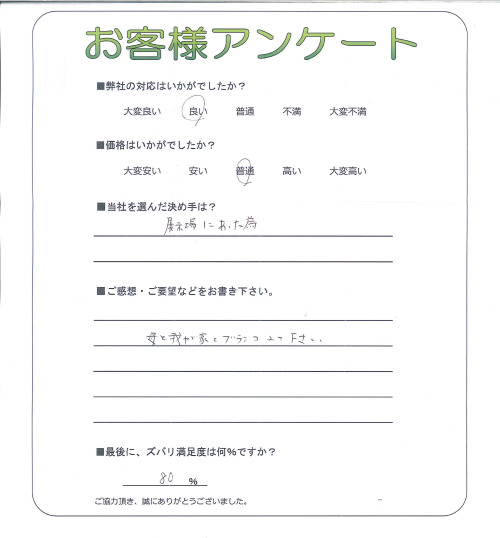 お客様アンケート
■弊社の対応はいかがでしたか？
大変良い 良い 普通 不満 大変不満
■価格はいかがでしたか？
大変安い 安い 普通 高い 大変高い
■当社を選んだ決め手は？
展示場にあった為
■ご感想・ご要望などをお書き下さい。
我が家 下さい
■最後に、ズバリ満足度は何%ですか？
80 %
ご協力頂き、誠にありがとうございました。